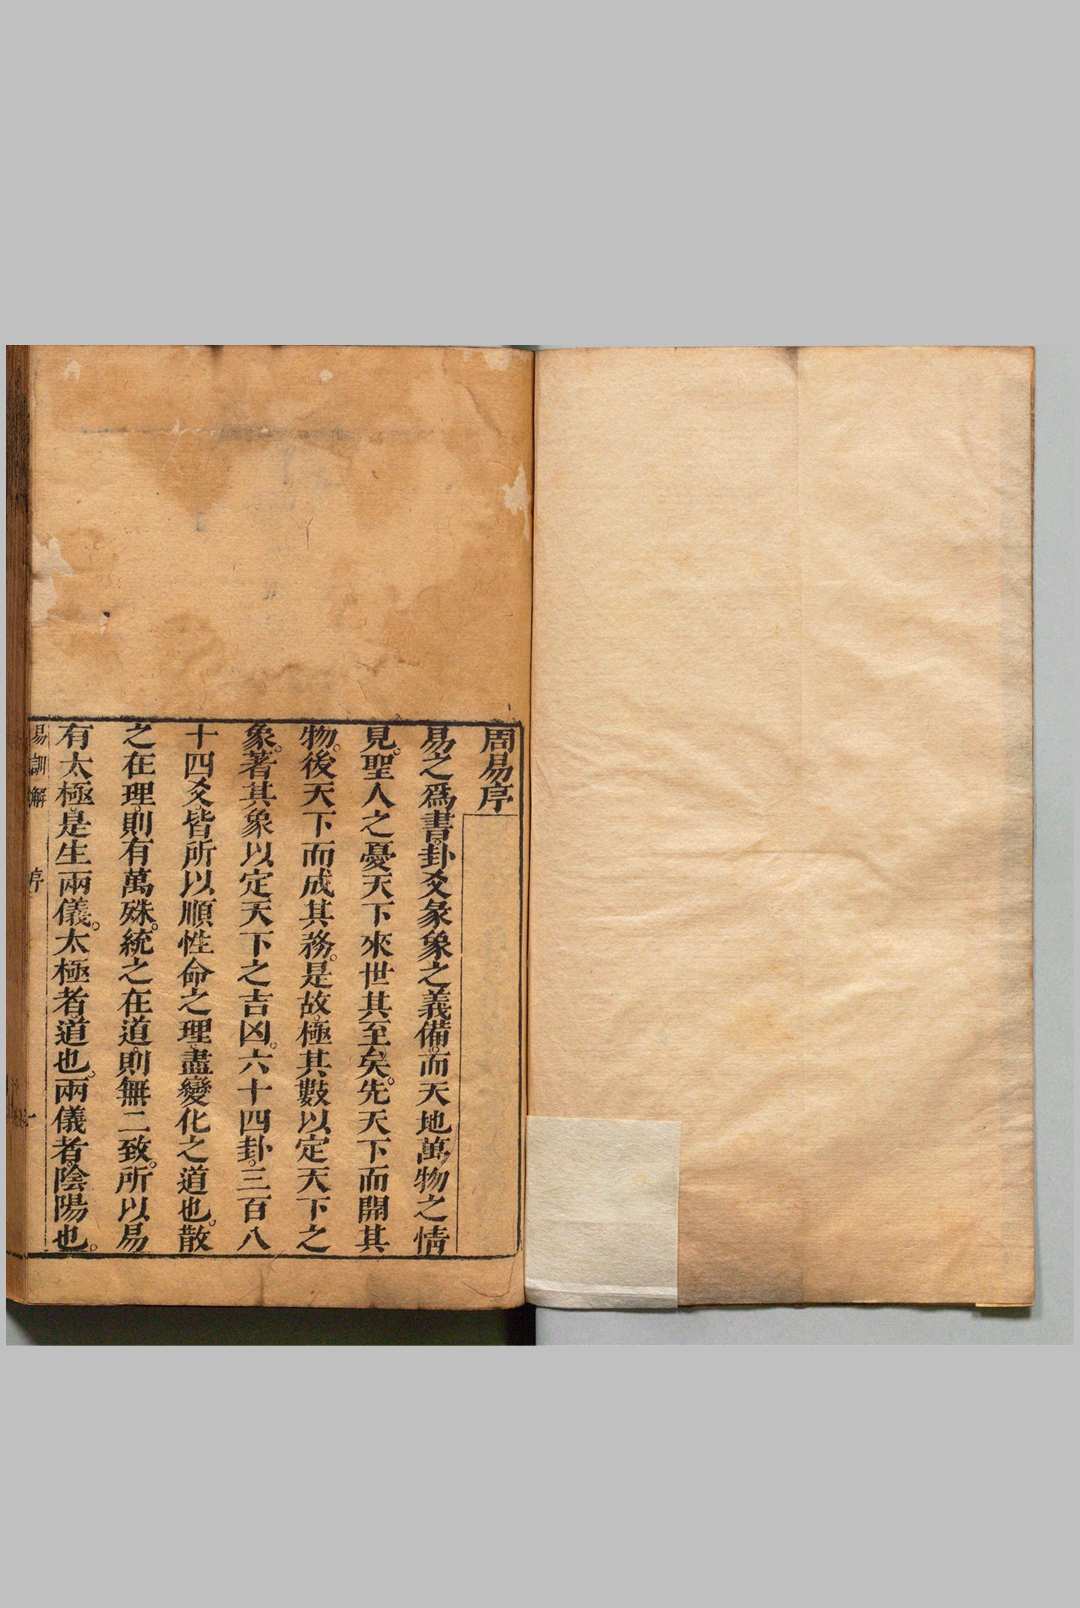 周易序
易之爲書。卦爻彖象之義備。而天地萬物之情
見。聖人之憂天下來世其至矣。先天下而開其
物。後天下而成其務。是故極其數以定天下之
象。著其象以定天下之吉凶。六十四卦。三百八
十四爻。皆所以順性命之理。盡變化之道也。散
之在理。則有萬殊。統之在道。則無二致。所以易
有太極。是生兩儀。太極者道也。兩儀者。陰陽也。
易訓解 序 一